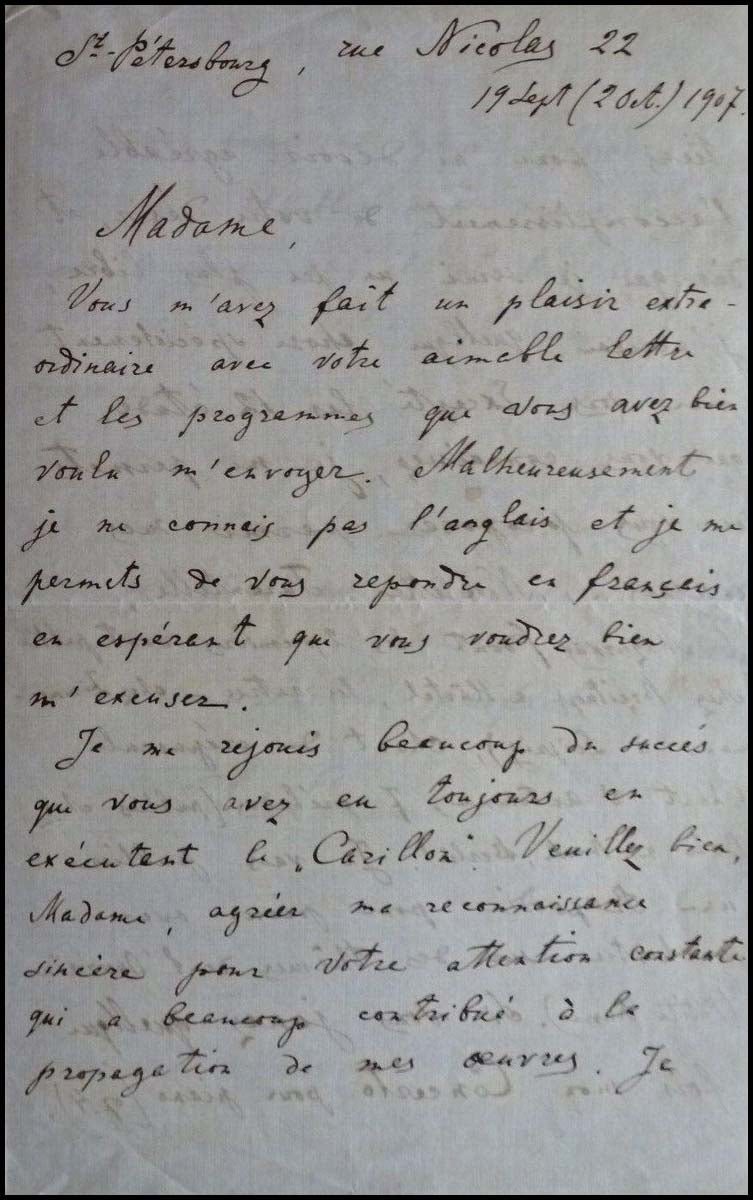 St-Pétersbourg, rue Nicolas 22
19 Sept (2 Oct.) 1907.
Madame,
Vous m'avez fait un plaisir extra-
ordinaire avec votre aimable lettre
et les programmes que vous avez bien
voulu m'envoyer. Malheureusement
je ne connais pas l'anglais et je me
permets de vous repondre en français
en espérant que vous voudrez bien
m'excuser.
Je me rejouis beaucoup du succés
que vous avez eu toujours en
exécutant le „Carillon". Veuillez bien,
Madame, agréer ma reconnaissance
sincère pour votre attention constante
qui a beaucoup contribué à la
propagation de mes œuvres. Je